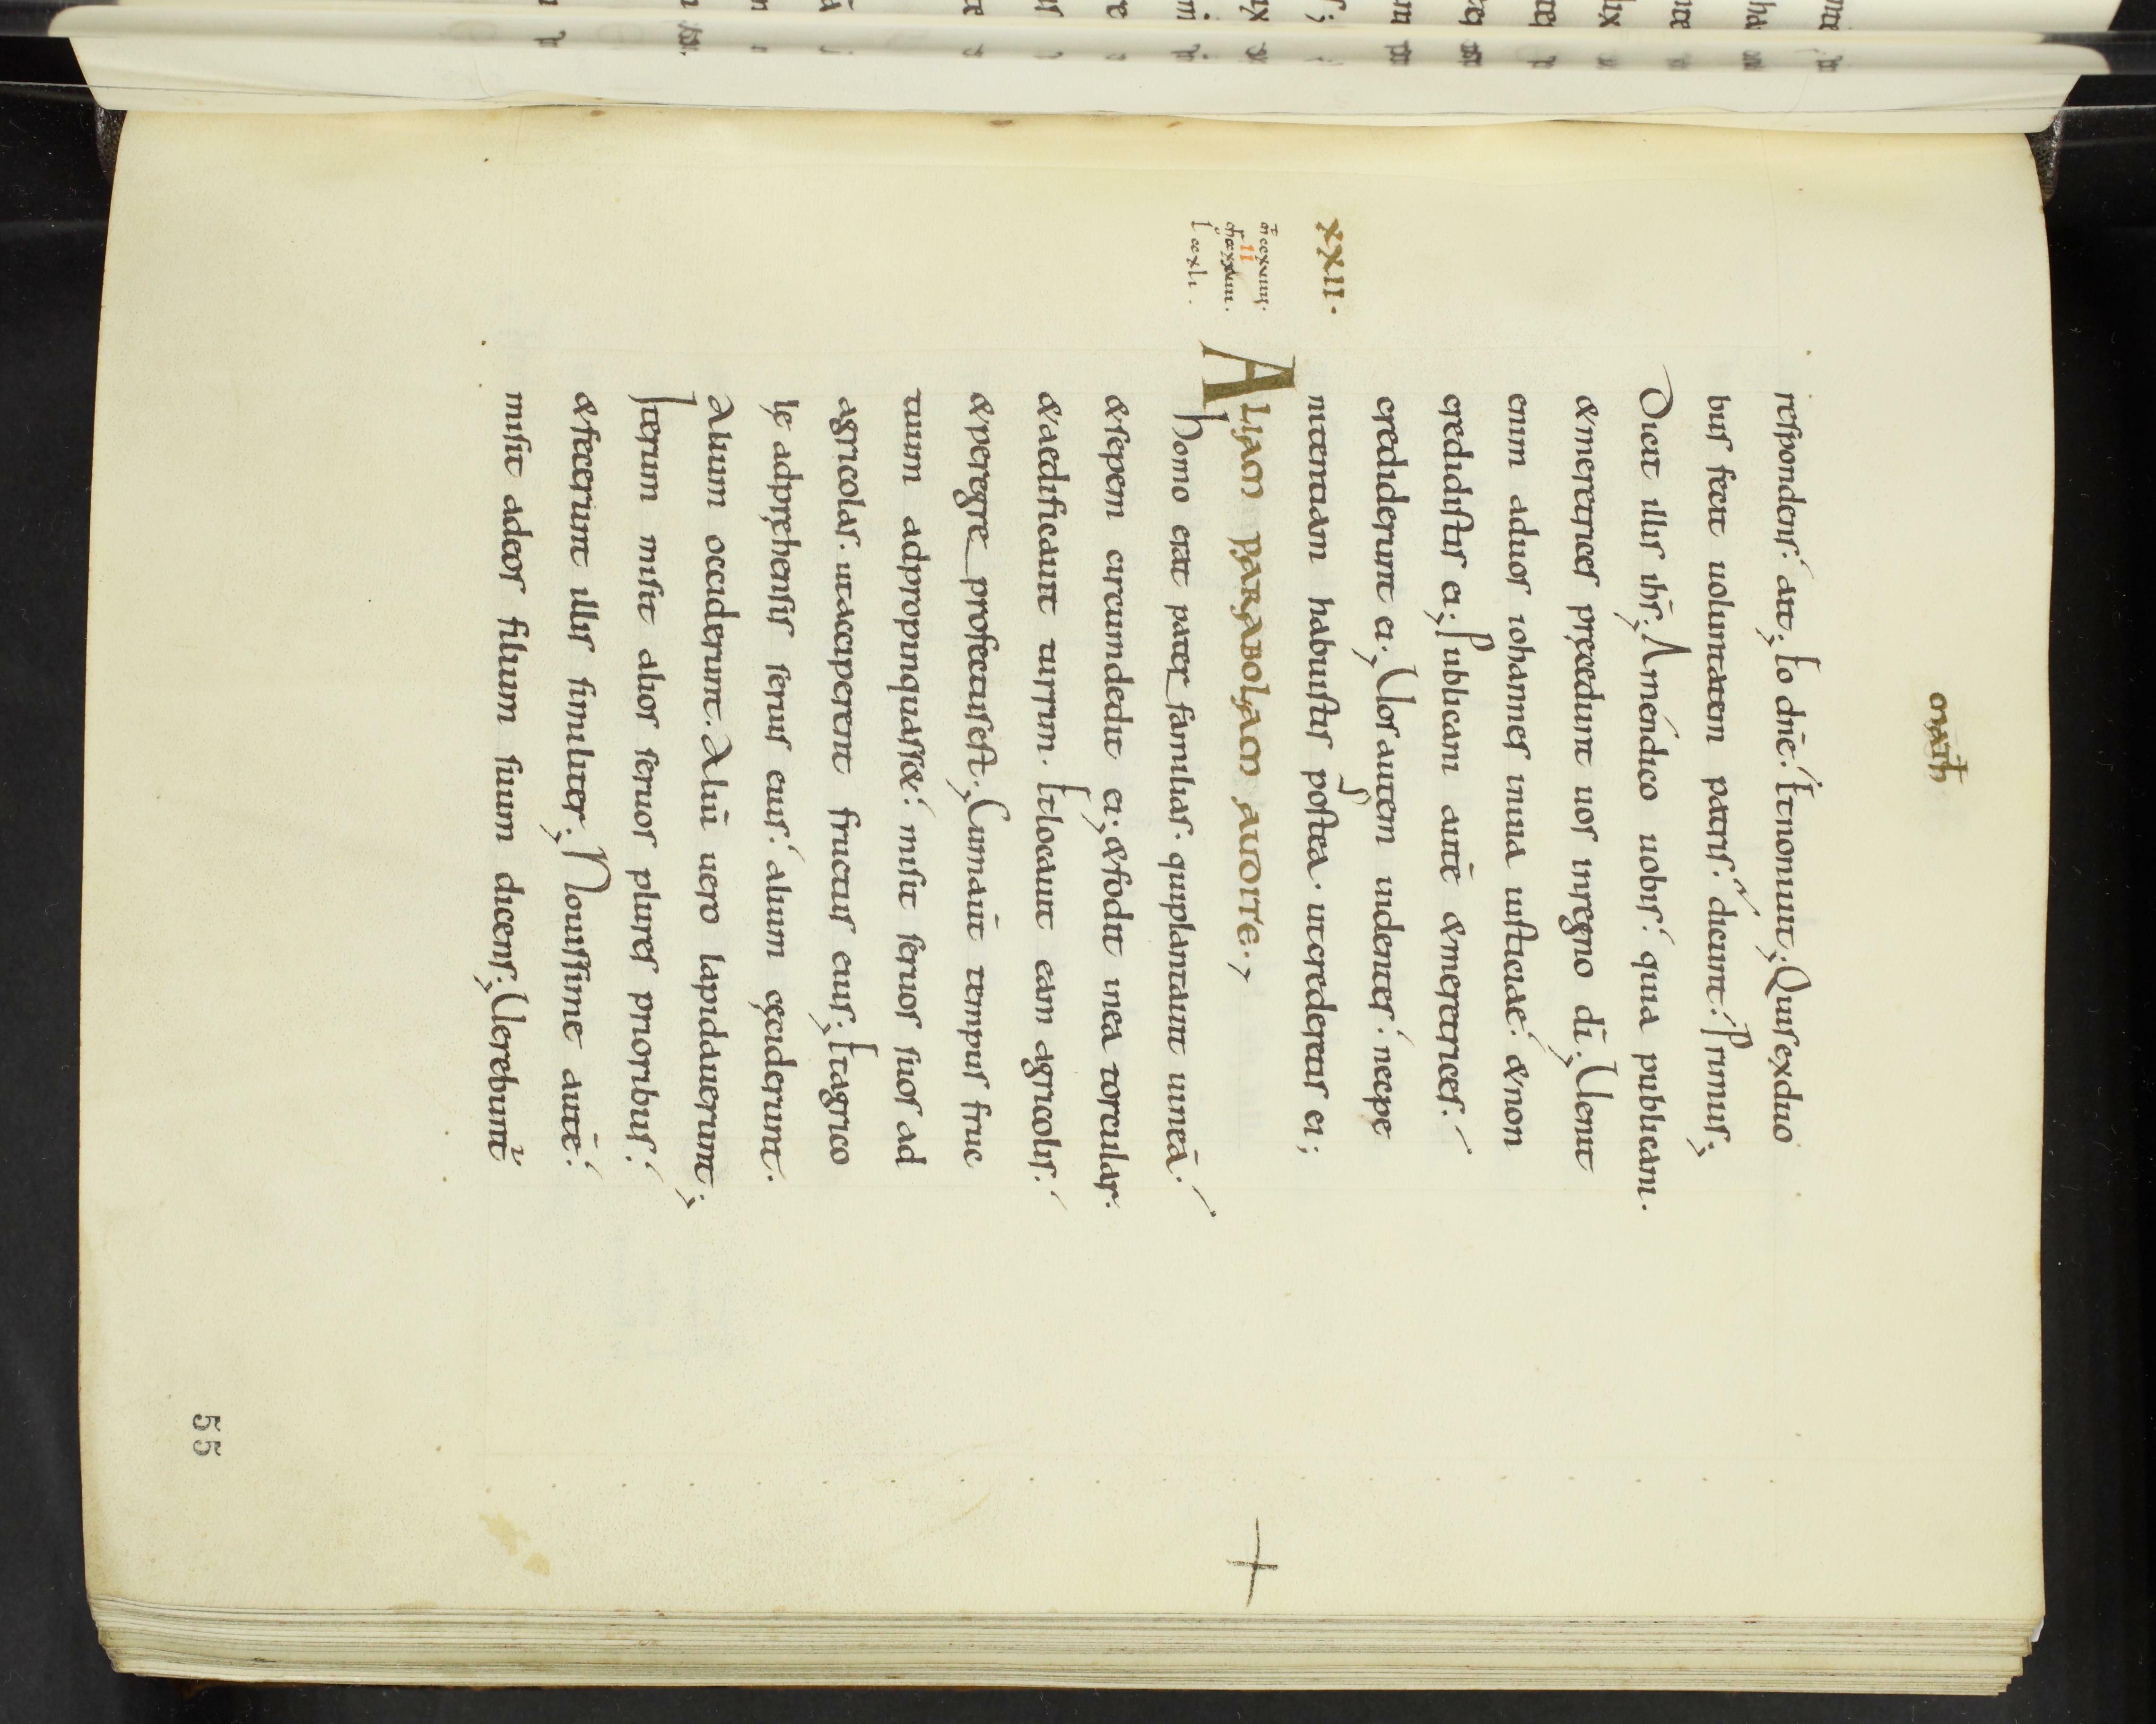 math
respondens. ait; Io dñe. Etnonuit; Quisexduo
bus fecit uoluntatem patris. dicunt. Primus;
Dicit illis ihs̄; Amendico uobis. quia publicani.
&meretrices pręcedunt uos inregno dī; Uenit
enim aduos iohannes inuia iusticiae. &non
credidistis ei; Publicani autē &meretrices.
crediderunt ei; Uos autem uidentes. necpe
nitentiam habuistis postea. utcrederetis ei;
XXII.
ALIAM PARABOLAM AUDITE;
II
Homo erat pater familias. quiplantauit uineā.
&sepem circumdedit ei; &fodit inea torcular.
&aedificauit turrim. Etlocauit eam agricolis.
&peregre profectusest; Cumaūt tempus fruc
tuum adpropinquass&. misit seruos suos ad
agricolas. utacciperent fructus eius; Etagrico
lę adpręhensis seruis eius. alium cęciderunt.
Alium occiderunt. Aliū uero lapidauerunt;
Iterum misit alios seruos plures prioribus.
&fecerunt illis similiter; Nouissime autē.
misit adeos filium suum dicens; Uerebunt
55